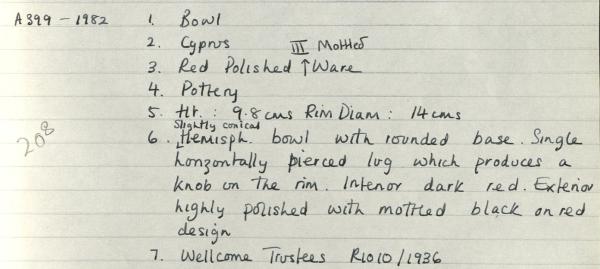 A399 - 1982 1. Bowl
2. Cyprus III Mottled
3. Red Polished ↑ Ware
4. Pottery
5. Ht. : 9.8 cms Rim Diam : 14 cms
Slightly conical
208 6. Hemisph. bowl with rounded base. Single
horizontally pierced lug which produces a
knob on the rim. Interior dark red. Exterior
highly polished with mottled black on red
design
7. Wellcome Trustees R1010/1936